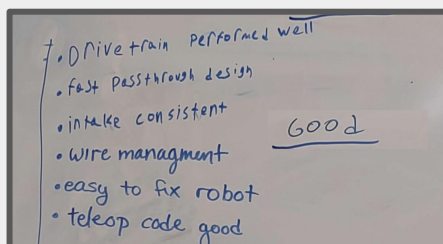 • Drivetrain performed well
• fast passthrough design
• intake consistent
Good
• wire managment
• easy to fix robot
• teleop code good